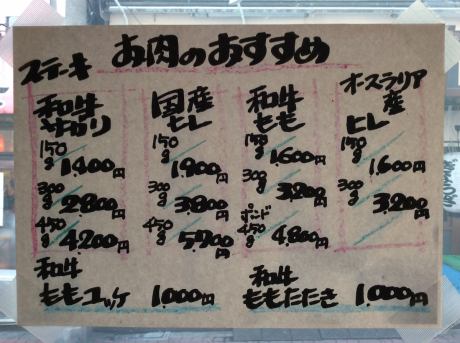 お肉のおすすめ
ステーキ
和牛
サガリ
150g 1,400円
300g 2,800円
450g 4,200円
国産
ヒレ
150g 1,900円
300g 3,800円
450g 5,700円
和牛
もも
150g 1,600円
300g 3,200円
ポンド
450g 4,800円
オースラリア
産
ヒレ
150g 1,600円
300g 3,200円
和牛
ももユッケ 1,000円
和牛
ももたたき 1,000円